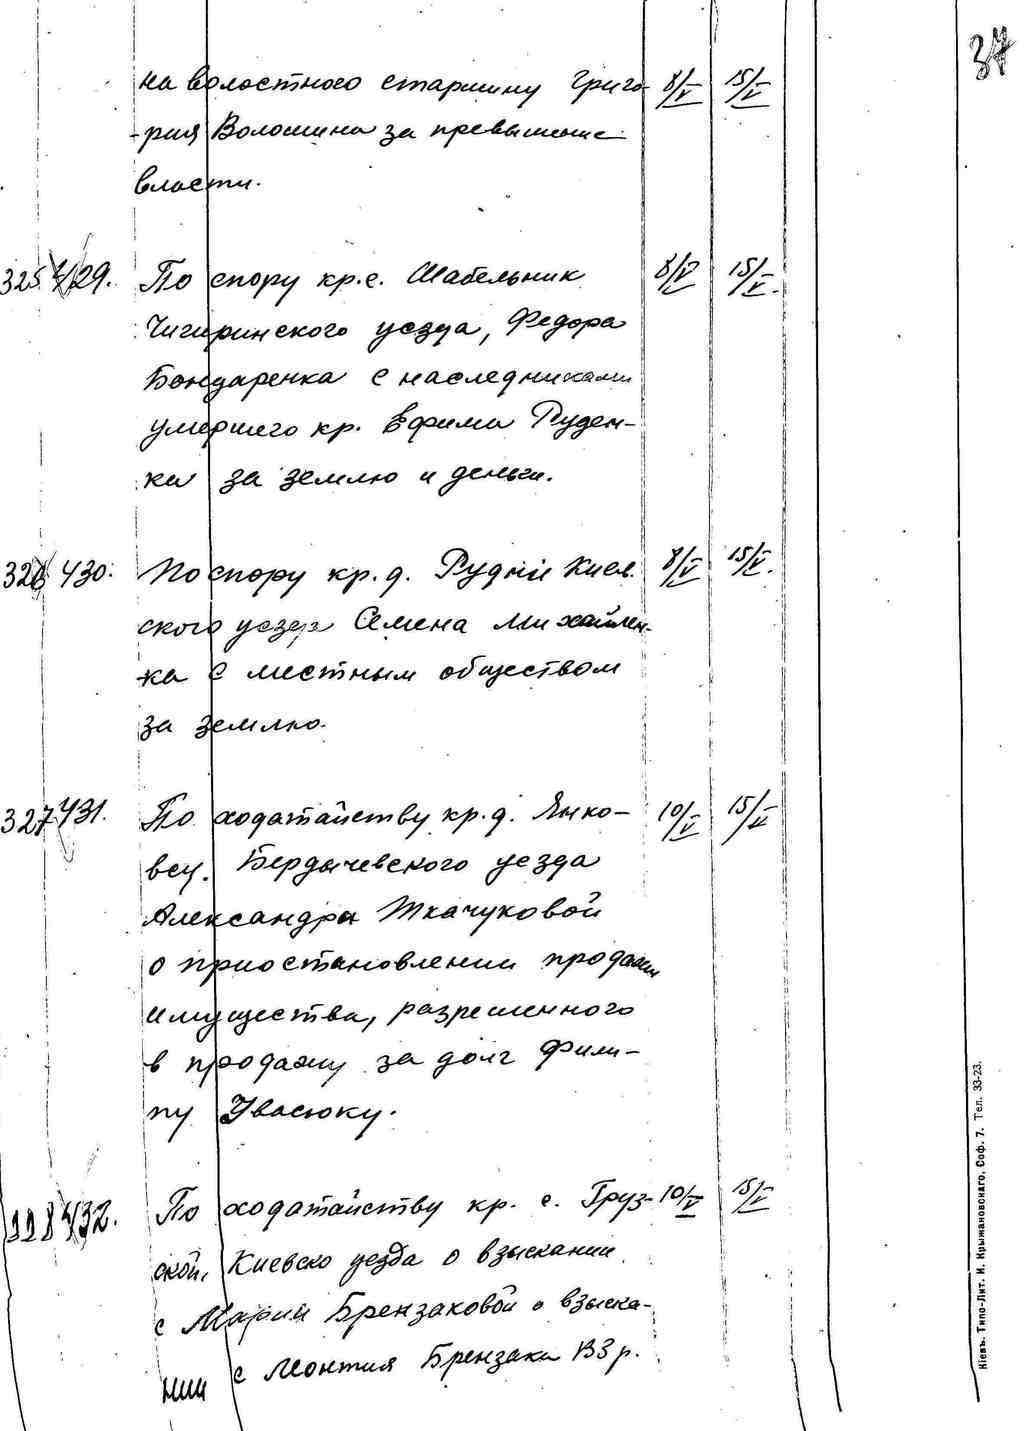 37
на волостного старшину Григо- 8/V 15/V
-рия Волошина за превышение
власти.
325 429. По спору кр. с. Шабельник 8/V 15/V.
Чигиринского уезда, Федора
Бондаренка с наследниками
умершего кр. Ефима Руден-
ка за землю и деньги.
326 430. По спору кр. д. Рудни Киев. 8/V 15/V.
ского уезда Семена Михайлен-
ка с местным обществом
за землю.
327 431. По ходатайству кр. д. Янко- 10/V 15/V
вец. Бердычевского уезда
Александра Ткачуковой
о приостановлении продажи
имущества, разрешенного
в продажу за долг Фили-
пу Увасюку.
328 432. По ходатайству кр. с. Груз- 10/V 15/V
ской, Киевско уезда о взыскании
с Марии Брензаковой о взыска-
нии с Монтия Брензака 133 р.
Кіевъ. Типо-Лит. И. Крыжановскаго, Соф. 7. Тел. 33-23.